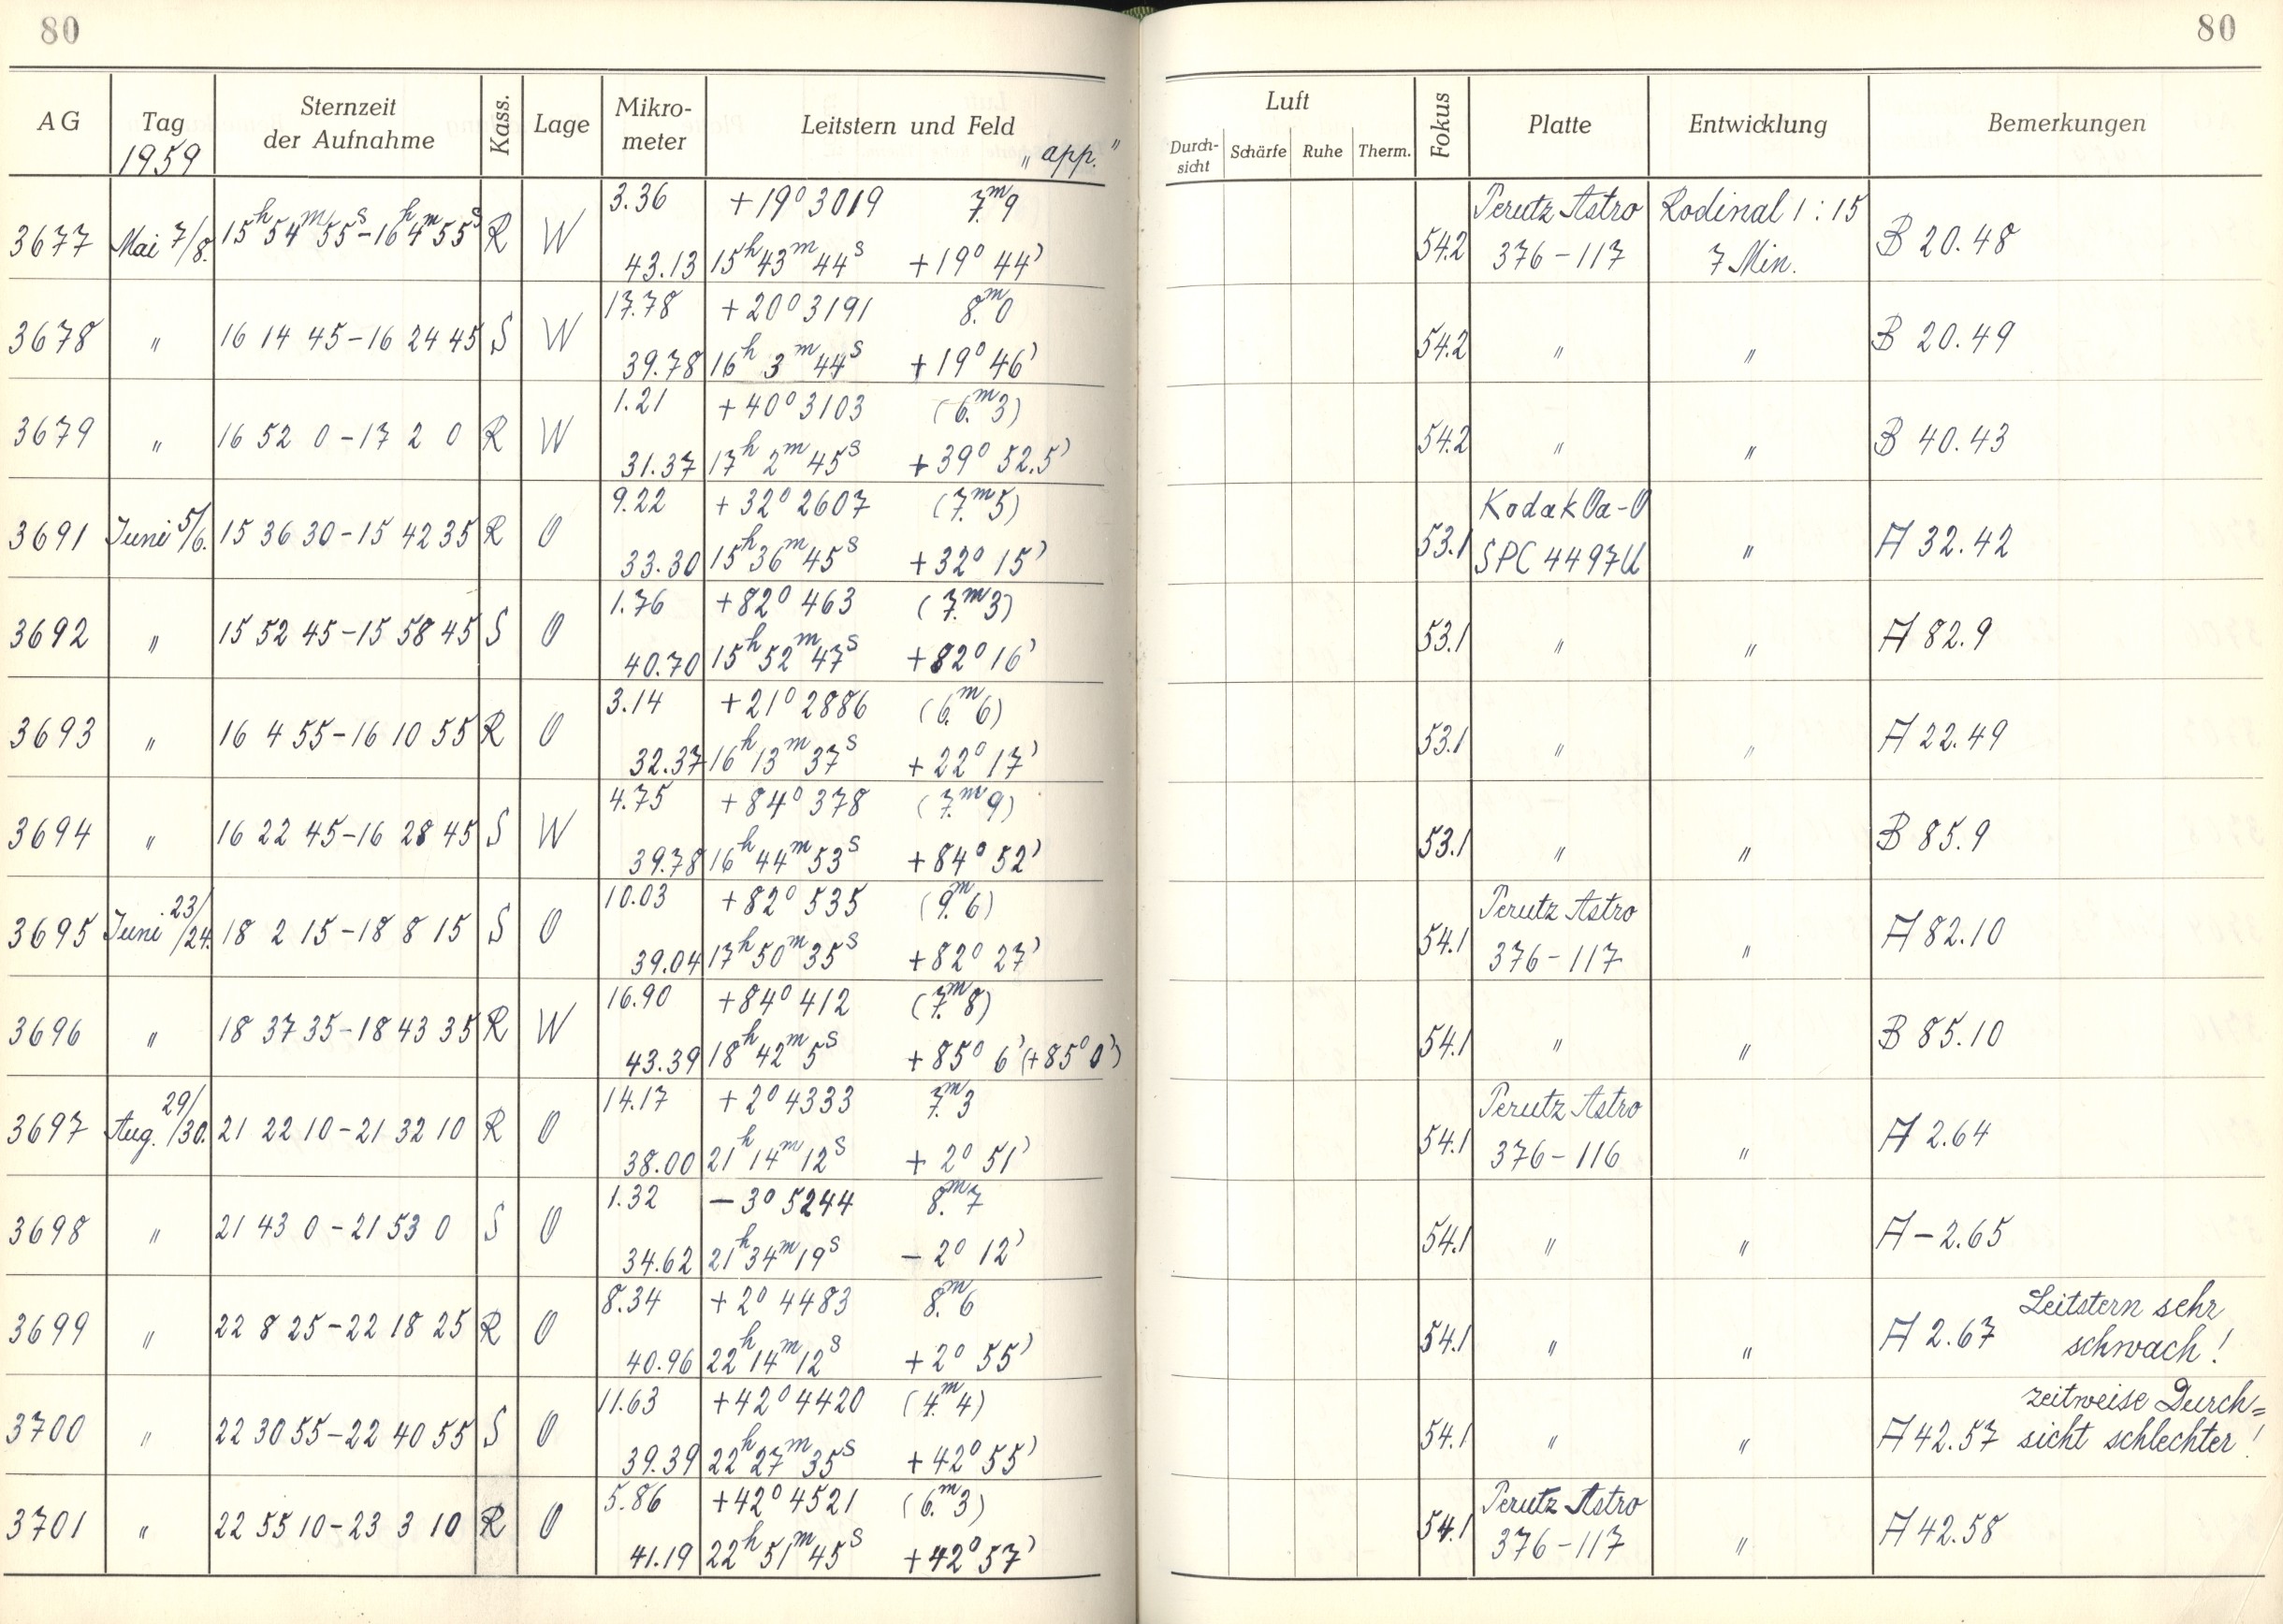 80
80
AG Tag 1959 Sternzeit der Aufnahme Kass. Lage Mikro-meter Leitstern und Feld „app.“
Luft Durch-sicht Schärfe Ruhe Therm. Fokus Platte Entwicklung Bemerkungen
3.36 +19° 3019 7.ᵐ9 Perutz Astro Rodinal 1:15
3677 Mai 7/8. 15ʰ54ᵐ55ˢ-16ʰ4ᵐ55ˢ R W 54.2 B 20.48
43.13 15ʰ43ᵐ44ˢ +19° 44' 376-117 7 Min.
17.78 +20° 3191 8.ᵐ0
3678 " 16 14 45-16 24 45 S W 54.2 " " B 20.49
39.78 16ʰ 3ᵐ44ˢ +19° 46'
1.21 +40° 3103 (6.ᵐ3)
3679 " 16 52 0-17 2 0 R W 54.2 " " B 40.43
31.37 17ʰ 2ᵐ45ˢ +39° 52.5'
9.22 +32° 2607 (7.ᵐ5) Kodak Oa-O
3691 Juni 5/6. 15 36 30-15 42 35 R O 53.1 " A 32.42
33.30 15ʰ36ᵐ45ˢ +32° 15' SPC 4497U
1.76 +82° 463 (7.ᵐ3)
3692 " 15 52 45-15 58 45 S O 53.1 " " A 82.9
40.70 15ʰ52ᵐ47ˢ +82° 16'
3.14 +21° 2886 (6.ᵐ6)
3693 " 16 4 55-16 10 55 R O 53.1 " " A 22.49
32.37 16ʰ13ᵐ37ˢ +22° 17'
4.75 +84° 378 (7.ᵐ9)
3694 " 16 22 45-16 28 45 S W 53.1 " " B 85.9
39.78 16ʰ44ᵐ53ˢ +84° 52'
10.03 +82° 535 (9.ᵐ6) Perutz Astro
3695 Juni 23/24. 18 2 15-18 8 15 S O 54.1 " A 82.10
39.04 17ʰ50ᵐ35ˢ +82° 27' 376-117
16.90 +84° 412 (7.ᵐ8)
3696 " 18 37 35-18 43 35 R W 54.1 " " B 85.10
43.39 18ʰ42ᵐ5ˢ +85° 6' (+85° 0')
14.17 +2° 4333 7.ᵐ3 Perutz Astro
3697 Aug. 29/30. 21 22 10-21 32 10 R O 54.1 " A 2.64
38.00 21ʰ14ᵐ12ˢ +2° 51' 376-116
1.32 -3° 5244 8.ᵐ7
3698 " 21 43 0-21 53 0 S O 54.1 " " A -2.65
34.62 21ʰ34ᵐ19ˢ -2° 12'
8.34 +2° 4483 8.ᵐ6 Leitstern sehr
3699 " 22 8 25-22 18 25 R O 54.1 " " A 2.67 schwach!
40.96 22ʰ14ᵐ12ˢ +2° 55'
11.63 +42° 4420 (4.ᵐ4) zeitweise Durch=
3700 " 22 30 55-22 40 55 S O 54.1 " " A 42.57 sicht schlechter!
39.39 22ʰ27ᵐ35ˢ +42° 55'
5.86 +42° 4521 (6.ᵐ3) Perutz Astro
3701 " 22 55 10-23 3 10 R O 54.1 " A 42.58
41.19 22ʰ51ᵐ45ˢ +42° 57' 376-117